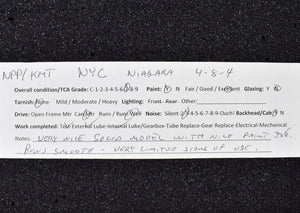 NPP/KMT NYC NIAGARA 4-8-4
Overall condition/TCA Grade: C-1-2-3-4-5-6-7-8-9 Paint: Y N Fair / Good / Excellent Glazing: Y N
Tarnish: None Mild / Moderate / Heavy Lighting: Front Rear Other:
Drive: Open Frame Mtr Can Mtr Runs / Runs Well Noise: Silent-2-3-4-5-6-7-8-9-Ouch! Backhead/Cab: Y N
Work completed: Test-External Lube-Internal Lube/Gearbox-Tube Replace-Gear Replace-Electrical-Mechanical
Notes: VERY NICE SOLID MODEL WITH NICE PAINT JOB.
RUNS SMOOTH - VERY LIMITED SIGNS OF USE.